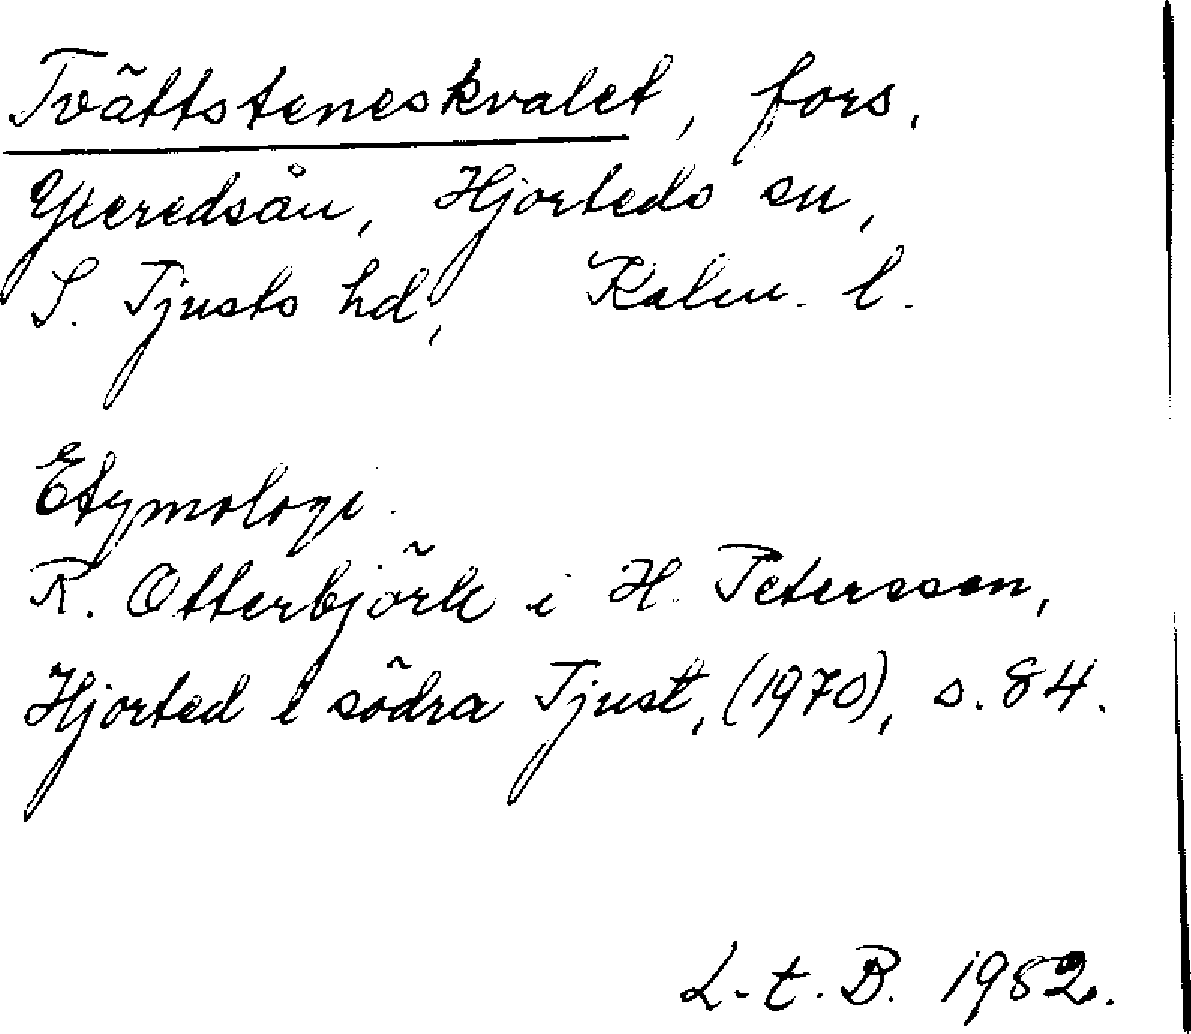 Tvättsteneskvalet, fors.
Yxeredsån, Hjorteds sn,
S. Tjusts hd, Kalm. l.
Etymologi.
R. Otterbjörk i H. Petersson,
Hjorted i södra Tjust, (1970), s. 84.
L. t. B. 1982.